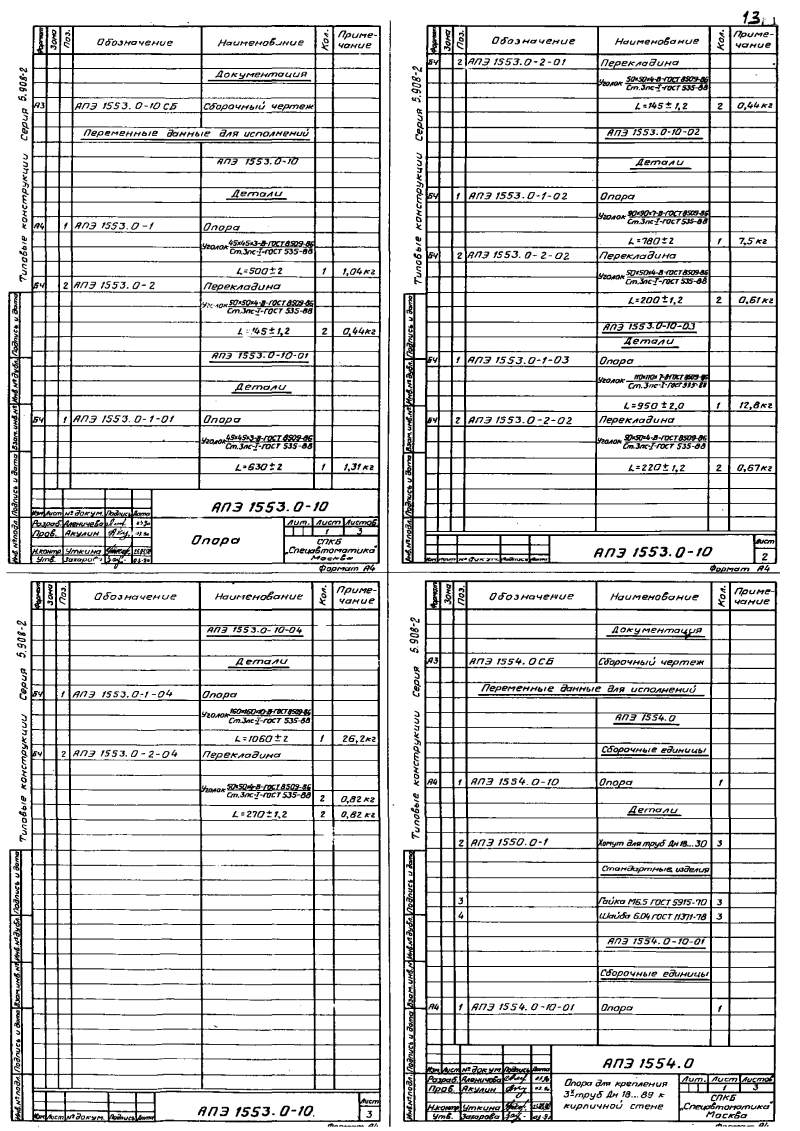 13
Типовые конструкции Серия 5.908-2
Формат Зона Поз. Обозначение Наименование Кол. Примечание
Документация
А3 АПЭ 1553.0-10 СБ Сборочный чертеж
Переменные данные для исполнений
АПЭ 1553.0-10
Детали
А4 1 АПЭ 1553.0-1 Опора
Уголок 45×45×3-В-ГОСТ 8509-86
Ст.3пс-I-ГОСТ 535-88
L=500±2 1 1,04кг
БЧ 2 АПЭ 1553.0-2 Перекладина
Уголок 50×50×4-В-ГОСТ 8509-86
Ст.3пс-I-ГОСТ 535-88
L=145±1,2 2 0,44кг
АПЭ 1553.0-10-01
Детали
БЧ 1 АПЭ 1553.0-1-01 Опора
Уголок 45×45×3-В-ГОСТ 8509-86
Ст.3пс-I-ГОСТ 535-88
L=630±2 1 1,31кг
Инв.№подл. Подпись и дата Взам.инв.№ Инв.№дубл. Подпись и дата
АПЭ 1553.0-10
Изм Лист № докум. Подпись Дата
Разраб. Аленичева
Пров. Акулин
Н.контр. Уткина
Утв. Захарова
Опора
Лит. Лист Листов
1 3
СПКБ
„Спецавтоматика"
Москва
Формат А4
Типовые конструкции Серия 5.908-2
Формат Зона Поз. Обозначение Наименование Кол. Примечание
БЧ 2 АПЭ 1553.0-2-01 Перекладина
Уголок 50×50×4-В-ГОСТ 8509-86
Ст.3пс-I-ГОСТ 535-88
L=145±1,2 2 0,44кг
АПЭ 1553.0-10-02
Детали
БЧ 1 АПЭ 1553.0-1-02 Опора
Уголок 90×90×7-В-ГОСТ 8509-86
Ст.3пс-I-ГОСТ 535-88
L=780±2 1 7,5кг
БЧ 2 АПЭ 1553.0-2-02 Перекладина
Уголок 50×50×4-В-ГОСТ 8509-86
Ст.3пс-I-ГОСТ 535-88
L=200±1,2 2 0,61кг
АПЭ 1553.0-10-03
Детали
БЧ 1 АПЭ 1553.0-1-03 Опора
Уголок 110×110×7-В-ГОСТ 8509-86
Ст.3пс-I-ГОСТ 535-88
L=950±2,0 1 12,8кг
БЧ 2 АПЭ 1553.0-2-02 Перекладина
Уголок 50×50×4-В-ГОСТ 8509-86
Ст.3пс-I-ГОСТ 535-88
L=220±1,2 2 0,67кг
Инв.№подл. Подпись и дата Взам.инв.№ Инв.№дубл. Подпись и дата
Изм Лист № докум. Подпись Дата
АПЭ 1553.0-10
Лист
2
Формат А4
Типовые конструкции Серия 5.908-2
Формат Зона Поз. Обозначение Наименование Кол. Примечание
АПЭ 1553.0-10-04
Детали
БЧ 1 АПЭ 1553.0-1-04 Опора
Уголок 160×160×10-В-ГОСТ 8509-86
Ст.3пс-I-ГОСТ 535-88
L=1060±2 1 26,2кг
БЧ 2 АПЭ 1553.0-2-04 Перекладина
Уголок 50×50×4-В-ГОСТ 8509-86
Ст.3пс-I-ГОСТ 535-88
2 0,82кг
L=270±1,2 2 0,82кг
Инв.№подл. Подпись и дата Взам.инв.№ Инв.№дубл. Подпись и дата
Изм Лист № докум. Подпись Дата
АПЭ 1553.0-10.
Лист
3
Формат А4
Типовые конструкции Серия 5.908-2
Формат Зона Поз. Обозначение Наименование Кол. Примечание
Документация
А3 АПЭ 1554.0СБ Сборочный чертеж
Переменные данные для исполнений
АПЭ 1554.0
Сборочные единицы
А4 1 АПЭ 1554.0-10 Опора 1
Детали
2 АПЭ 1550.0-1 Хомут для труб Дн 18...30 3
Стандартные изделия
3 Гайка М6.5 ГОСТ 5915-70 3
4 Шайба 6.04 ГОСТ 11371-78 3
АПЭ 1554.0-10-01
Сборочные единицы
А4 1 АПЭ 1554.0-10-01 Опора 1
Инв.№подл. Подпись и дата Взам.инв.№ Инв.№дубл. Подпись и дата
АПЭ 1554.0
Изм Лист № докум. Подпись Дата
Разраб. Аленичева
Пров. Акулин
Н.контр. Уткина
Утв. Захарова
Опора для крепления
3х труб Дн 18...89 к
кирпичной стене
Лит. Лист Листов
1 3
СПКБ
„Спецавтоматика"
Москва
Формат А4